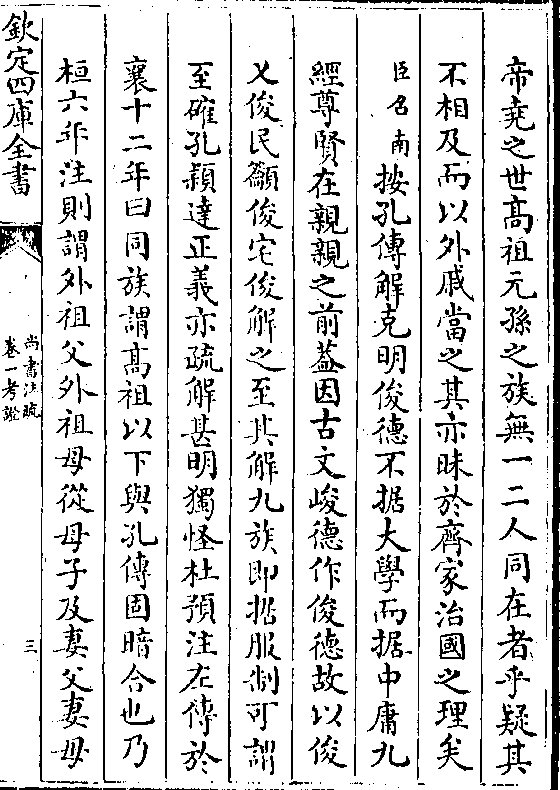 帝堯之世高祖元孫之族無一二人同在者乎疑其
不相及而以外戚當之其亦昧於齊家治國之理矣
臣召南按孔傳解克明俊德不据大學而据中庸九
經尊賢在親親之前葢因古文峻德作俊德故以俊
乂俊民籲俊宅俊解之至其解九族即据服制可謂
至確孔穎達正義亦疏解甚明獨怪杜預注左傳於
襄十二年曰同族謂高祖以下與孔傳固暗合也乃
桓六年注則謂外祖父外祖母從母子及妻父妻母
欽定四庫全書
尚書注疏
卷一考證
三